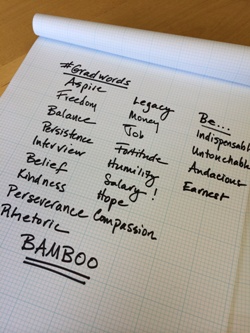 #Gradwords
Aspire
Freedom
Balance
Persistence
Interview
Belief
Kindness
Perseverance
Rhetoric
BAMBOO
Legacy
Money
Job
Fortitude
Humility
Salary!
Hope
Compassion
Be...
Indispensable
Untouchable
Audacious
Earnest